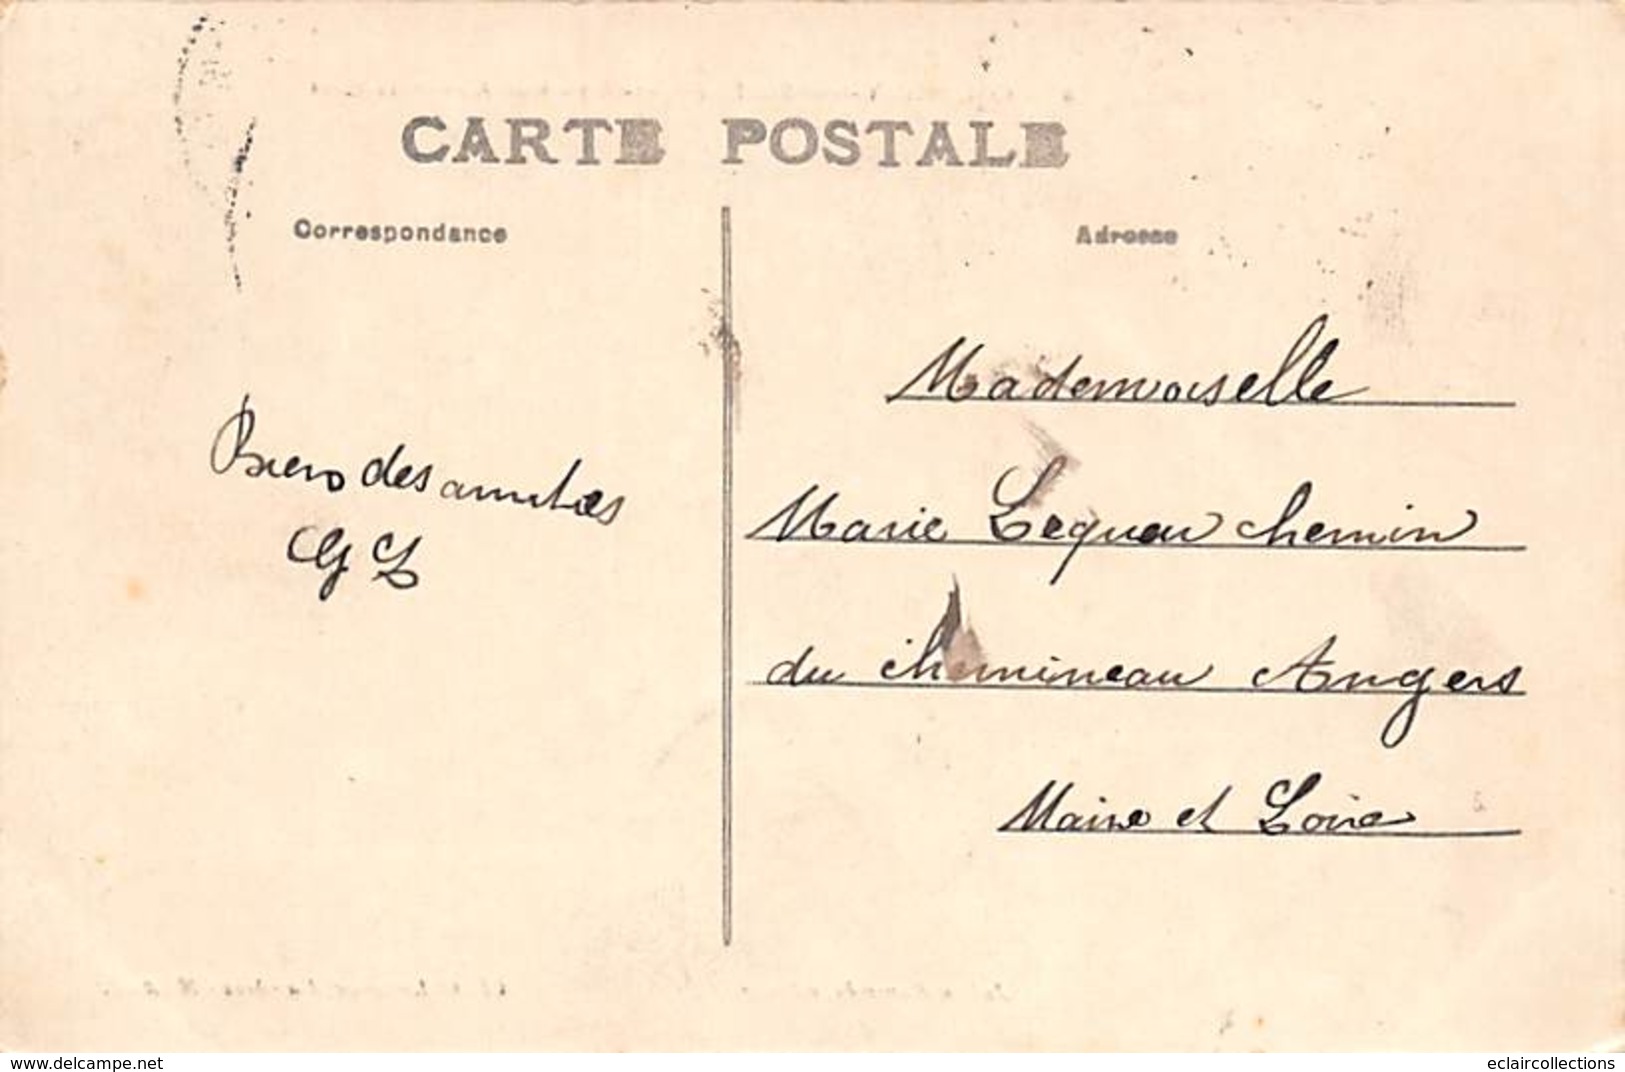 CARTE POSTALE
Correspondance
Adresse
Biens des amities
G L
Mademoiselle
Marie Lequeu chemin
du chemineau Angers
Maine et Loire
www.delcampe.net
eclaircollections